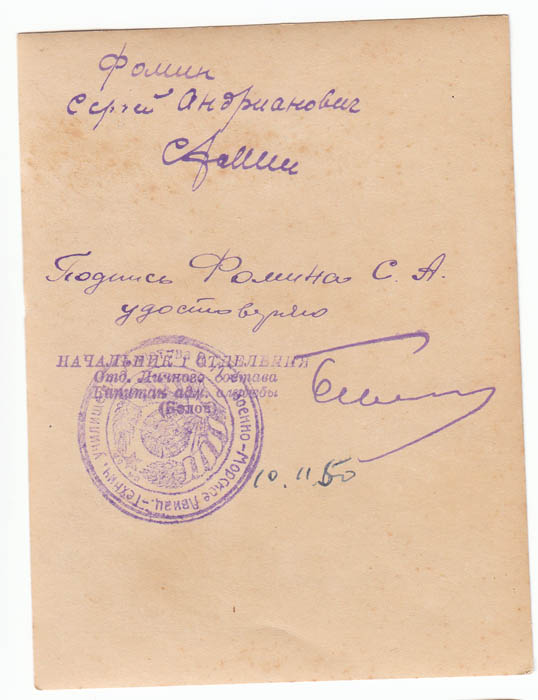 Фомин
Сергей Андрианович
СФомин
Подпись Фомина С. А.
удостоверяю
НАЧАЛЬНИК 1 ОТДЕЛЕНИЯ
Отд. Личного состава
Капитан адм. службы
(Белов)
Военно-Морское Авиац.-Технич. училище
10.11.50